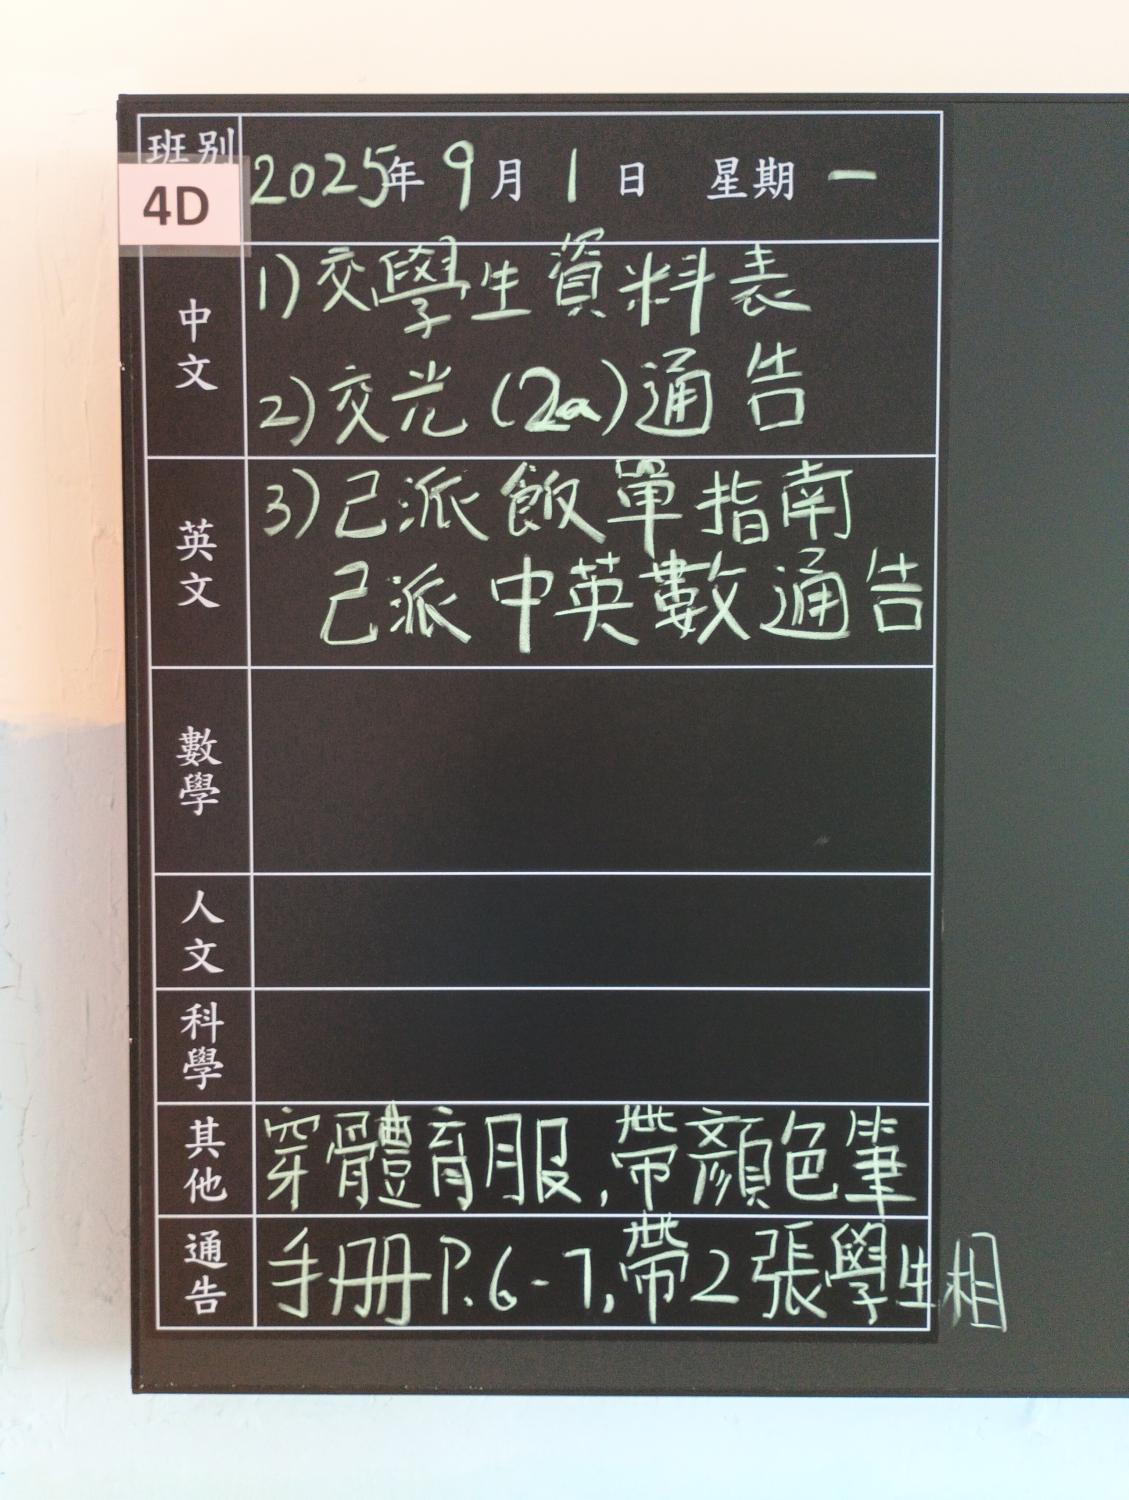 班別 2025年 9月 1日 星期一
4D
中文
1) 交學生資料表
2) 交光(2a)通告
英文
3) 已派飯單指南
已派中英數通告
數學
人文
科學
其他
穿體育服,帶顏色筆
通告
手冊P.6-7,帶2張學生相